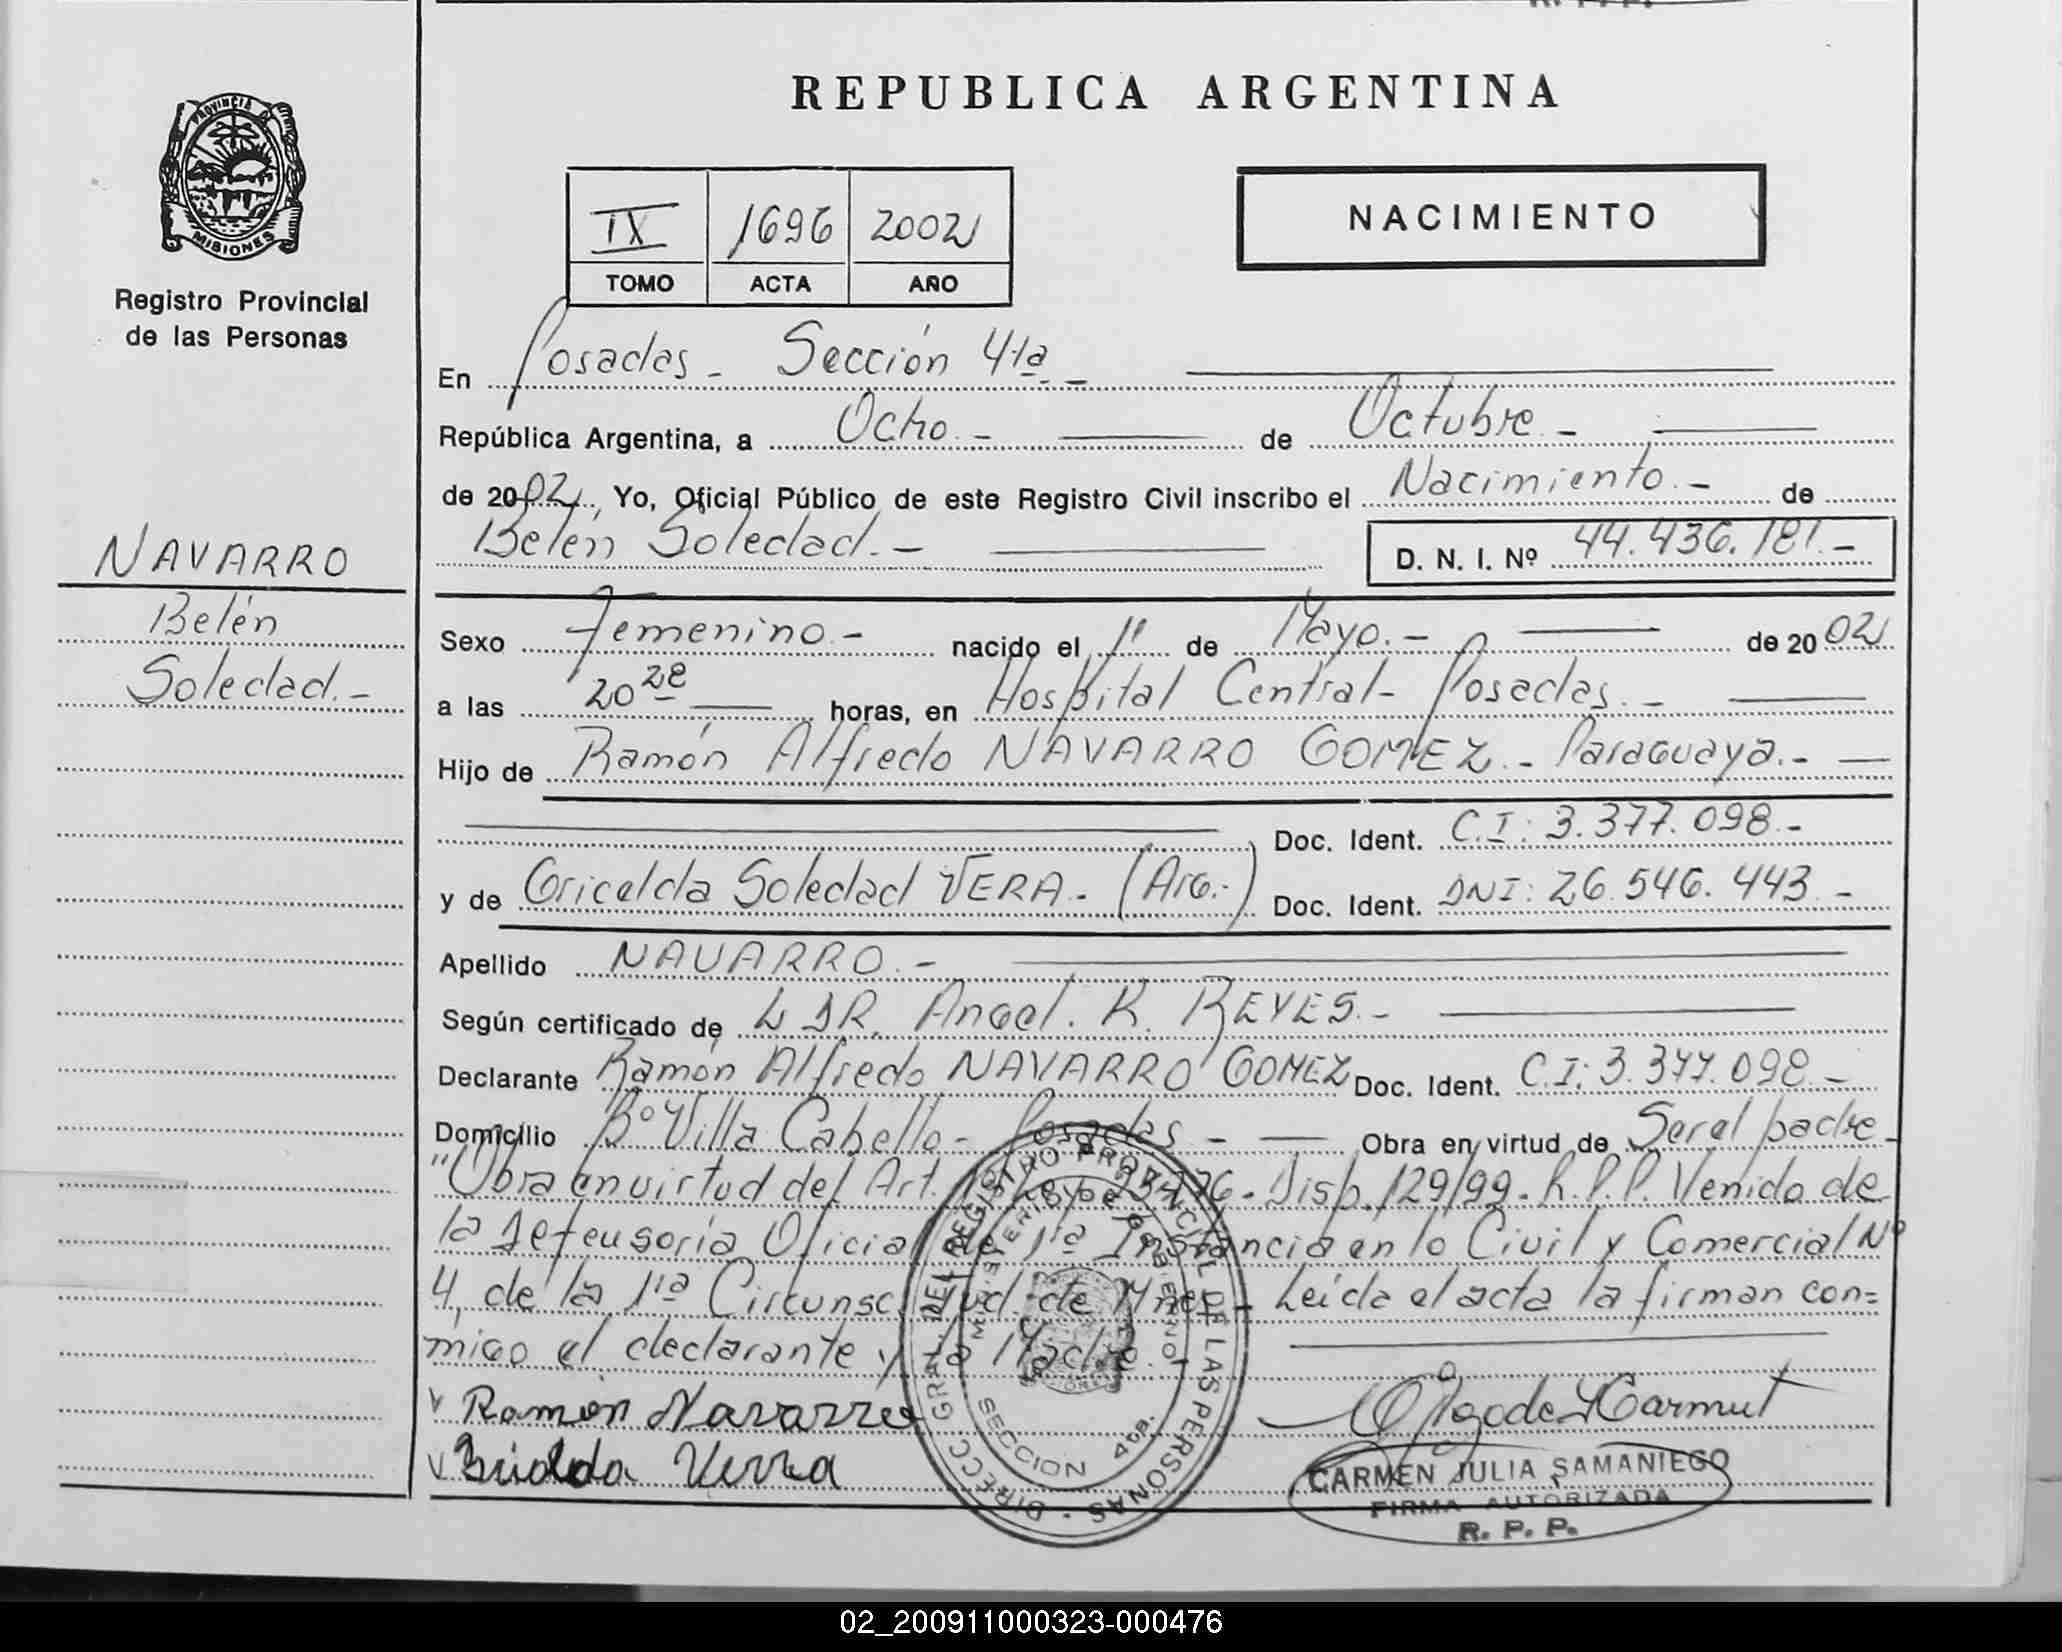 REPUBLICA ARGENTINA
PROVINCIA D
MISIONES
Registro Provincial
de las Personas
NAVARRO
Belén
Soledad.-
IX 1696 2002
TOMO ACTA AÑO
NACIMIENTO
En Posadas - Sección 4ta. -
República Argentina, a Ocho. - de Octubre. -
de 2002, Yo, Oficial Público de este Registro Civil inscribo el Nacimiento. - de
Belén Soledad. - D. N. I. Nº 44.436.181.-
Sexo Femenino.- nacido el 1º de Mayo.- de 2002
a las 20 28 horas, en Hospital Central- Posadas.-
Hijo de Ramón Alfredo NAVARRO GOMEZ.- Paraguaya.-
Doc. Ident. C.I: 3.377.098.-
y de Gricelda Soledad VERA. (Arg.-) Doc. Ident. DNI: 26.546.443.-
Apellido NAVARRO.-
Según certificado de DR. Angel. R. REYES.-
Declarante Ramón Alfredo NAVARRO GOMEZ Doc. Ident. C.I: 3.377.098.-
Domicilio Bº Villa Cabello- Posadas - Obra en virtud de Ser el padre-
"Obra en virtud del Art. Disp. 129/99. R.P.P. Venido de
la Defensoría Oficial de 1ra Instancia en lo Civil y Comercial Nº
4, de la 1ra Circunsc. Jud. de Mnes.- Leída el acta la firman con=
migo el declarante y la Madre.
Ramón Navarro
Vera
DIRECC. GRAL. DEL REGISTRO PROVINCIAL DE LAS PERSONAS
MINISTERIO DE GOBIERNO
SECCION 4ta.
CARMEN JULIA SAMANIEGO
FIRMA AUTORIZADA
R. P. P.
02_200911000323-000476